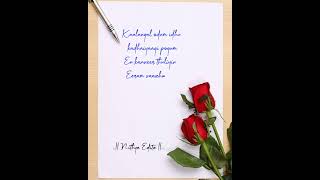 Kaalangal odum idhu
kadhaiyaagi pogum
En kanneer thuliyin
Eeram vaazhum
// Nithya Edits //.